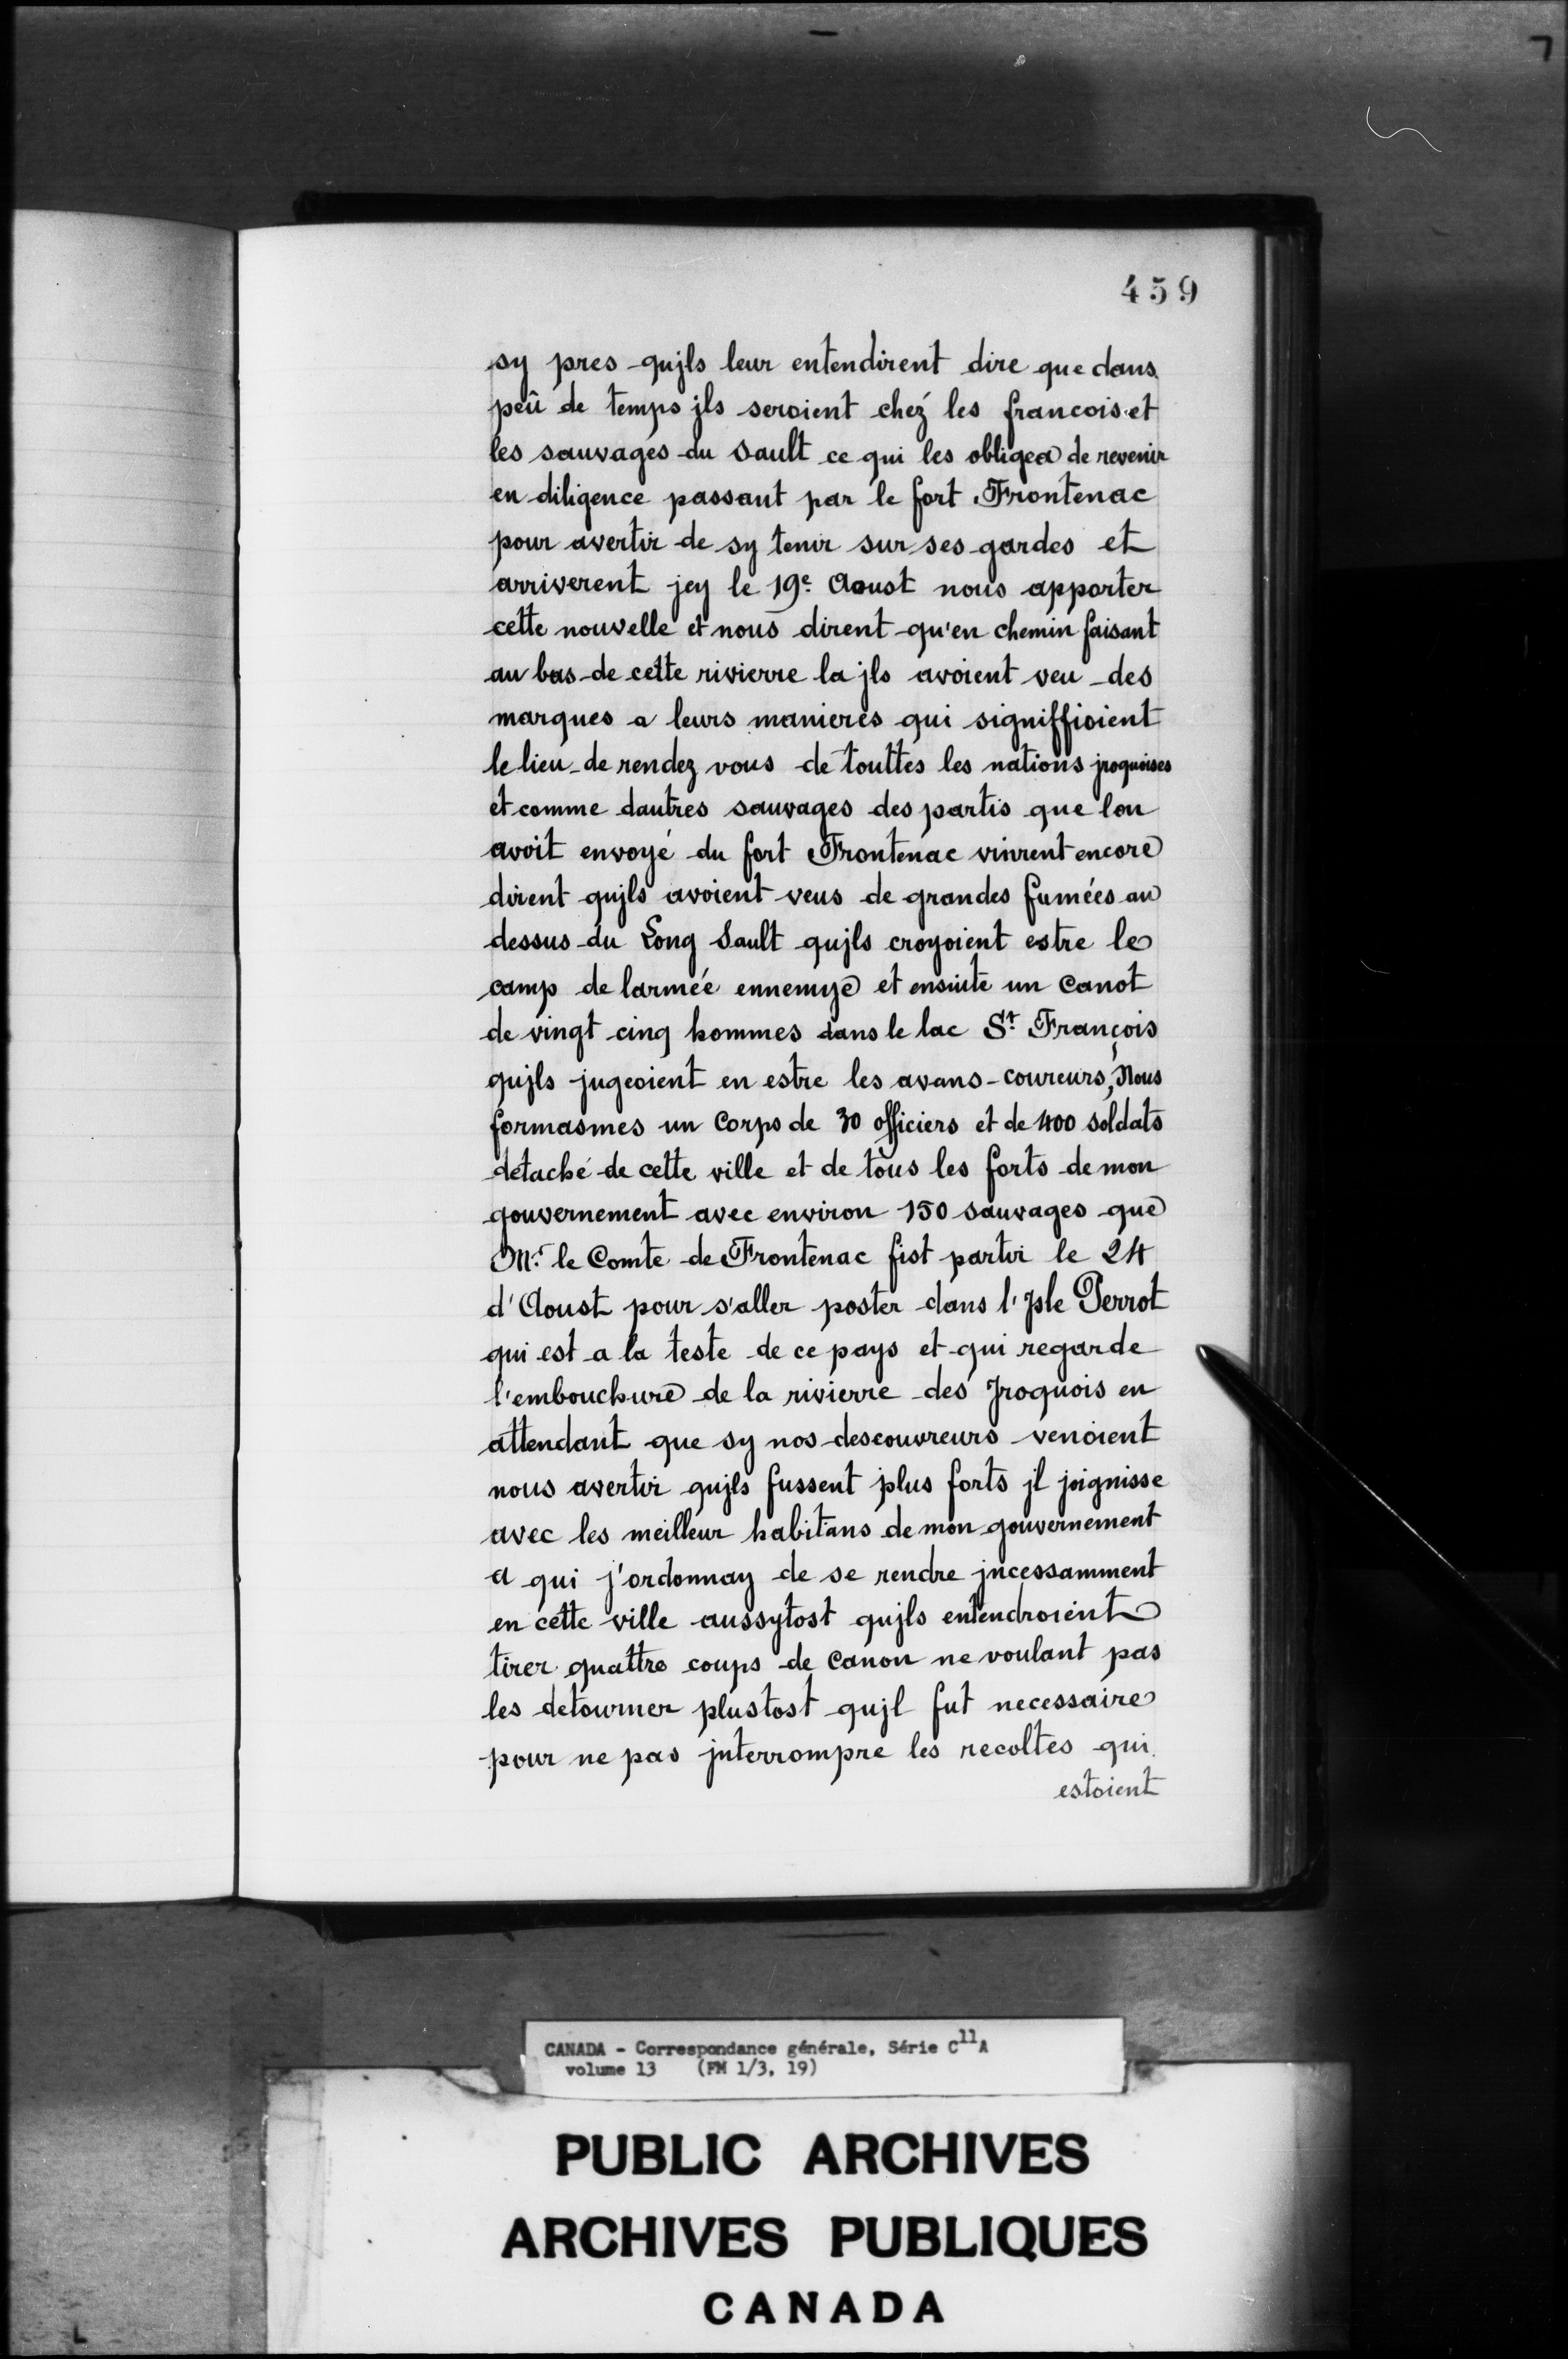 459
sy pres qujls leur entendirent dire que dans
peû de temps jls seroient chez les francois et
les sauvages du Sault ce qui les obligea de revenir
en diligence passant par le fort Frontenac
pour avertir de sy tenir sur ses gardes et
arriverent jcy le 19e. Aoust nous apporter
cette nouvelle et nous dirent qu'en chemin faisant
au bas de cette rivierre la jls avoient veu des
marques a leurs manieres qui signiffioient
le lieu de rendez vous de touttes les nations jroquoises
et comme dautres sauvages des partis que lon
avoit envoyé du fort Frontenac vinrent encore
dirent qujls avoient veus de grandes fumées au
dessus du Long Sault qujls croyoient estre le
camp de larmée ennemye et ensuite un Canot
de vingt cinq hommes dans le lac St. François
qujls jugeoient en estre les avans-coureurs, Nous
formasmes un Corps de 30 officiers et de 400 Soldats
detaché de cette ville et de tous les forts de mon
gouvernement avec environ 150 sauvages que
Mr. le Comte de Frontenac fist partir le 24
d'Aoust pour s'aller poster dans l'Jsle Perrot
qui est a la teste de ce pays et qui regarde
l'embouchure de la rivierre des Jroquois en
attendant que sy nos descouvreurs venoient
nous avertir qujls fussent plus forts jl joignisse
avec les meilleur habitans de mon gouvernement
a qui j'ordonnay de se rendre jncessamment
en cette ville aussytost qujls entendroient
tirer quattre coups de Canon ne voulant pas
les detourner plustost qujl fut necessaire
pour ne pas jnterrompre les recoltes qui
estoient
CANADA - Correspondance générale, Série C11A
volume 13 (FM 1/3, 19)
PUBLIC ARCHIVES
ARCHIVES PUBLIQUES
CANADA